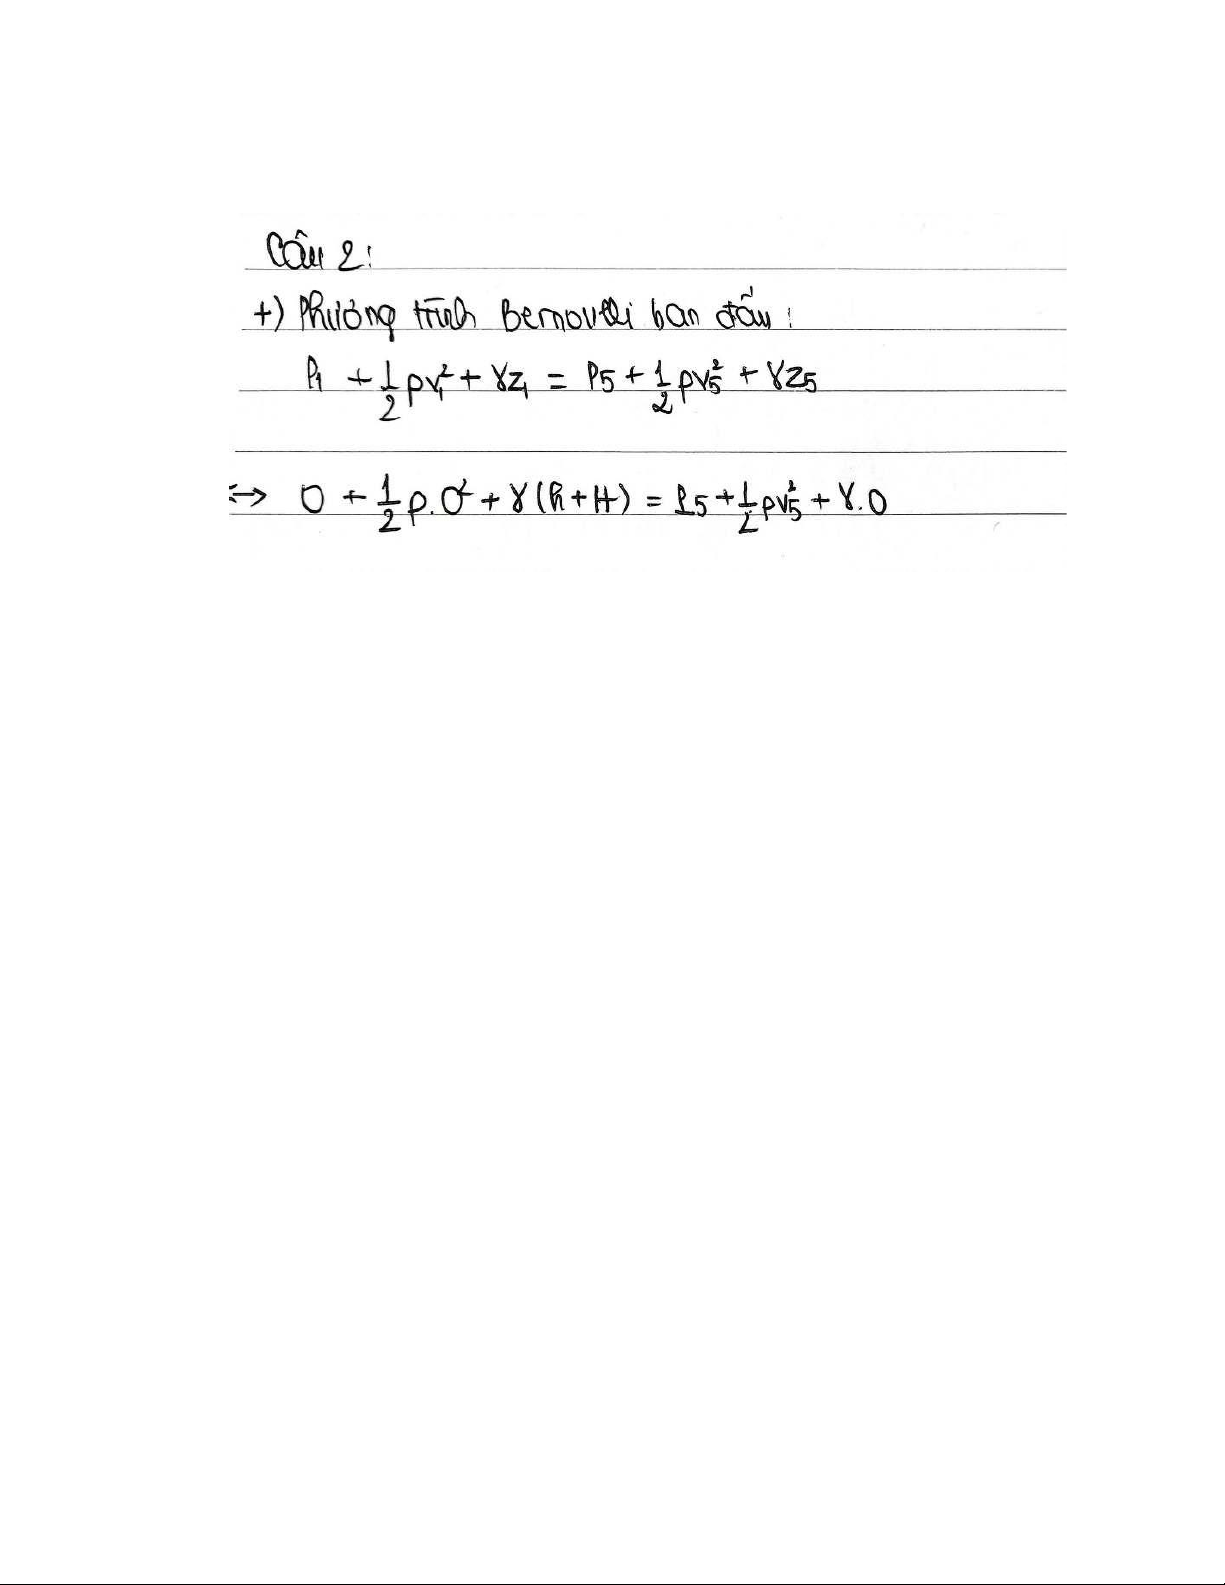 Câu 2:
+) Phương trình Bernoulli ban đầu:
P₁ + 1/2 ρv₁² + γz₁ = P5 + 1/2 ρv5² + γz5
<=> 0 + 1/2 ρ.0² + γ(h+H) = P5 + 1/2 ρv5² + γ.0